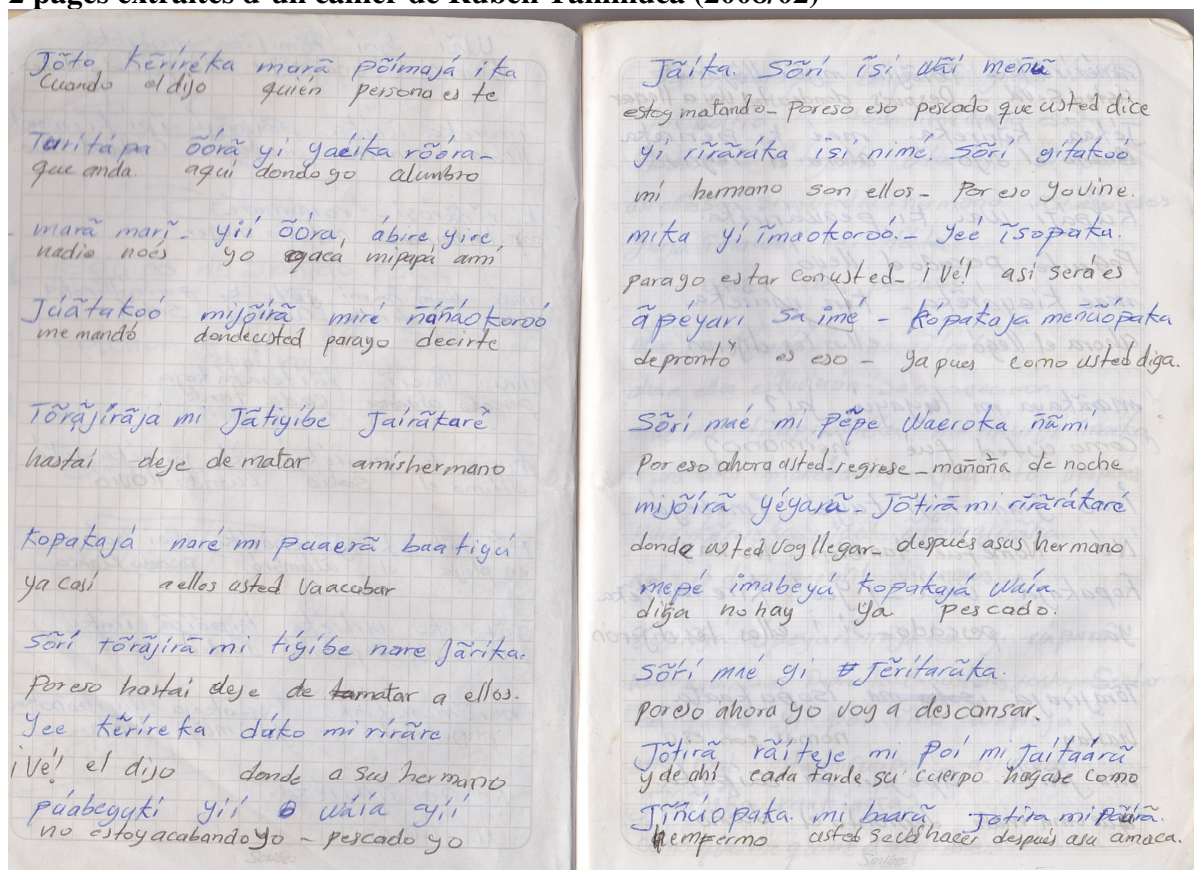 2 pages extraites d'un cahier de Ruben Tanimuca (2008/02)
Jõto kẽrĩréka marã põĩmajá ika
Cuando el dijo quién persona es te
Turitápa õórã yi yaéika rõóra-
que anda. aquí dondo yo alumbro
marã marĩ- yií õóra, ábire yire
nadie noés yo yacá mipapá ami
Júãtakoó mijõírã miré ñáñáokoroó
me mandó dondeusted parayo decirte
Tõrãjĩrãja mi Jãtigíbe Jaírãkarẽ
hastaí deje de matar amishermano
kopakajá naré mi puaerã baatiyú
ya casí aellos usted Vaacabar
Sõrí tõrãjirã mi tígíbe nare Jãríka.
Poreso hastaí deje de matar a ellos.
Yee kẽríreka dáko mi rírãre
¡Vé! el dijo donde a sus hermano
púabeyukí yií wáía yií
no estoyacabando yo - pescado yo
Jãíka. Sõrí ĩsi wãi meñu
estoy matando- Poreso eso pescado que usted dice
yi rĩrãráka ísi nimé. Sõrí yitakoó
mi hermano son ellos- Por eso yovine.
mika yí ĩmaokoroó.- Yeé ĩsopaka.
parayo estar conusted- ¡Vé! así será es
ãpéyari Sa imé - kopakaja meñúopaka
depronto es eso - ya pues como usted diga.
Sõrí maé mi pẽpe Waeroka ñãmi
Por eso ahora usted-regrese-mañana de noche
mijõírã yéyarã- Jõtirã mi rírãrákaré
donde usted voy llegar- después asus hermano
mepé imabeyú kopakajá waía
diga no hay ya pescado.
Sõrí maé yi Jẽrítarũka.
poreso ahora yo voy a descansar.
Jõtirã rãíteje mi poí mi Jaítaárũ
y de ahí cada tarde su cuerpo hagase como
Jĩñúopaka. mi baarũ Jotira mi pãúrã.
enfermo usted se va hacer después asu amaca.